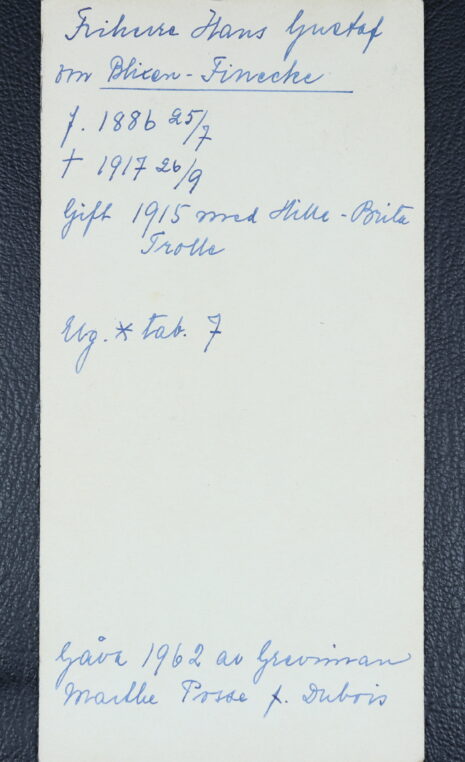 Friherre Hans Gustaf
von Blixen-Finecke
f. 1886 25/7
† 1917 26/9
Gift 1915 med Hilla-Brita
Trolle
Elg. * tab. 7
Gåva 1962 av Grevinnan
Marthe Posse f. Dubois